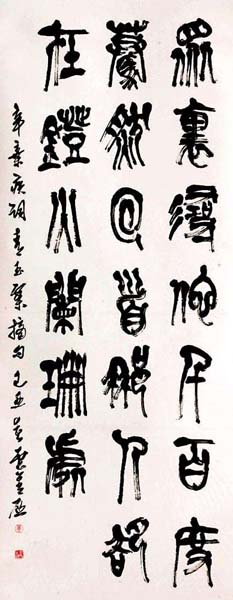 眾裏尋佗千百度
驀然回首那人卻
在鐙火闌珊處
辛棄疾詞青玉案摘句